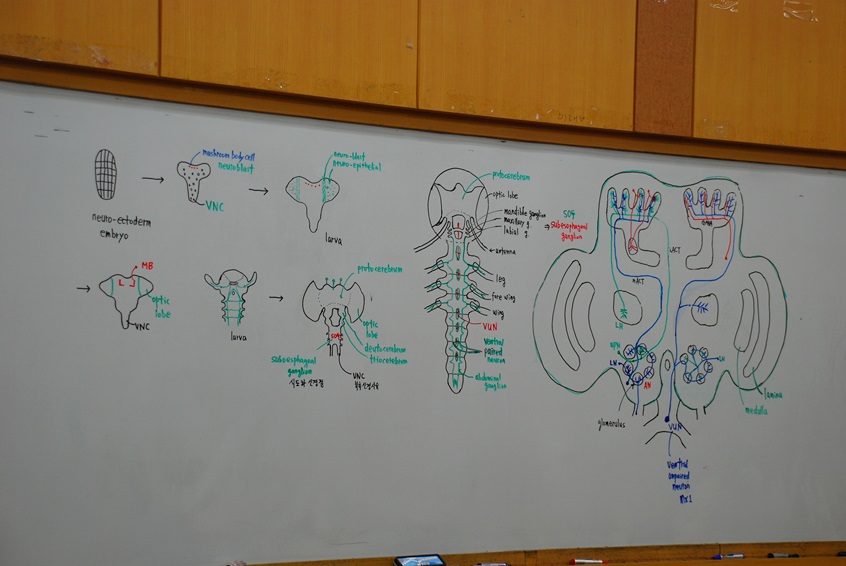 mushroom body cell
neuroblast
VNC
neuro-ectoderm
embryo
neuro-blast
neuro-epithelial
larva
MB
optic
lobe
VNC
larva
protocerebrum
optic
lobe
deutocerebrum
tritocerebrum
SOG
subesophageal
ganglion
식도하 신경절
VNC
protocerebrum
optic lobe
mandible ganglion
maxillary g
labial g.
antenna
leg
fore wing
wing
VUN
ventral
paired
neuron
abdominal
ganglion
SOG
subesophageal
ganglion
LACT
mACT
LH
LN
AN
LN
glomerulus
VUN
ventral
unpaired
neuron
lamina
medulla